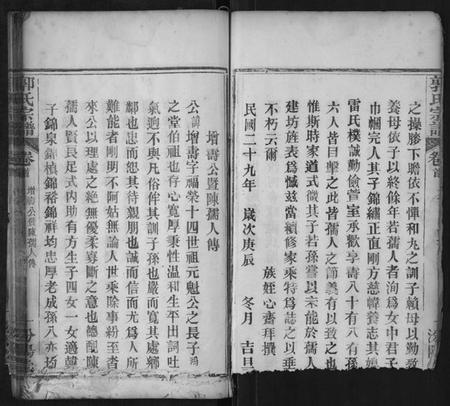 郭氏宗譜
卷首
之操膝下聽依不憚和丸之訓子賴母以勤
養母依子以終餘年若儒人者洵爲女中君子
巾幗完人其子錦繡正直剛方慈幃善志其
雷氏樸誠勤儉萱室承歡享壽八十有八有孫
六人皆目擊之此皆孺人之節義有以致之也
惟斯時家道式微其子若孫嘗以未能於孺人
建坊旌表爲憾茲當續修家乘特爲誌之以垂
不朽云爾
族姪心齋拜撰
民國二十九年 歲次庚辰 冬月 吉旦
增壽公暨陳孺人傳
公諱增壽字福榮十四世祖元魁公之長子
之堂伯祖也存心寬厚秉性溫和生平出詞吐
氣逈不與凡俗侔其訓子孫也嚴而寬其處鄉
鄰也忠而恕其待親朋也誠而信而尤爲人所
難能者剛期不阿姑無論人世乘除事紛至沓
來公以理處之絕無優柔寡斷之意也德配陳
孺人賢良足式內助有方生子四女一女適韓
子錦泉錦楨錦裕錦祥均忠厚老成孫八亦均
郭氏宗譜
卷首
增壽公暨陳孺人傳
汾陽堂